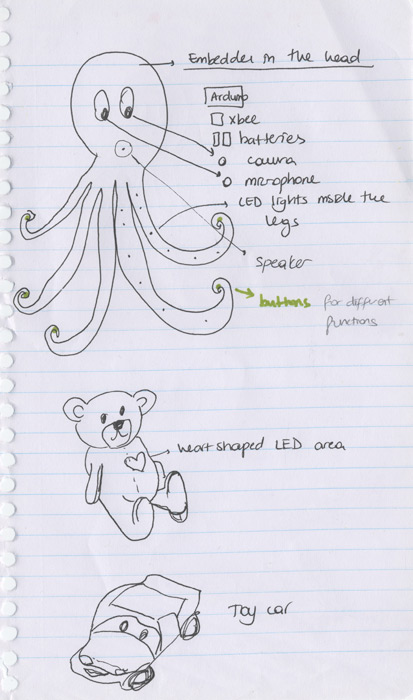 Embedded in the head
Arduino
xbee
batteries
camera
microphone
LED lights inside the
legs
speaker
buttons for different
functions
heart shaped LED area
Toy car